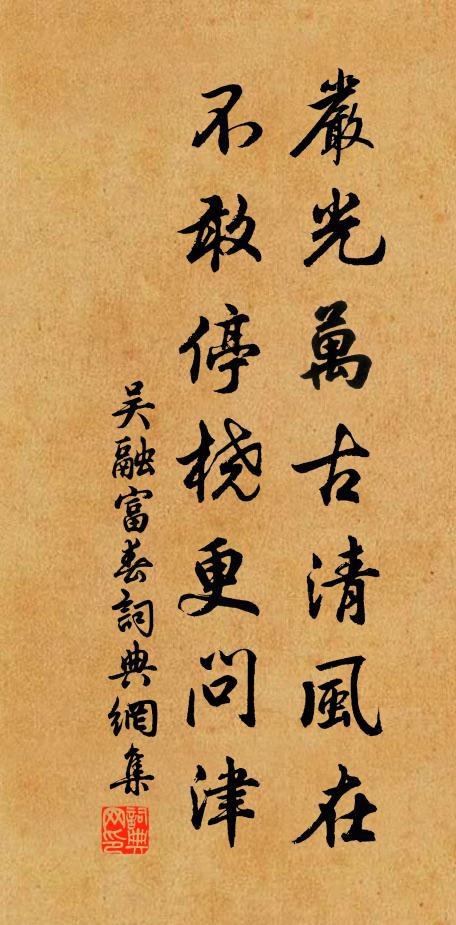 嚴光萬古清風在
不敢停桡更問津
吴融富春詞典網集
詞典网印